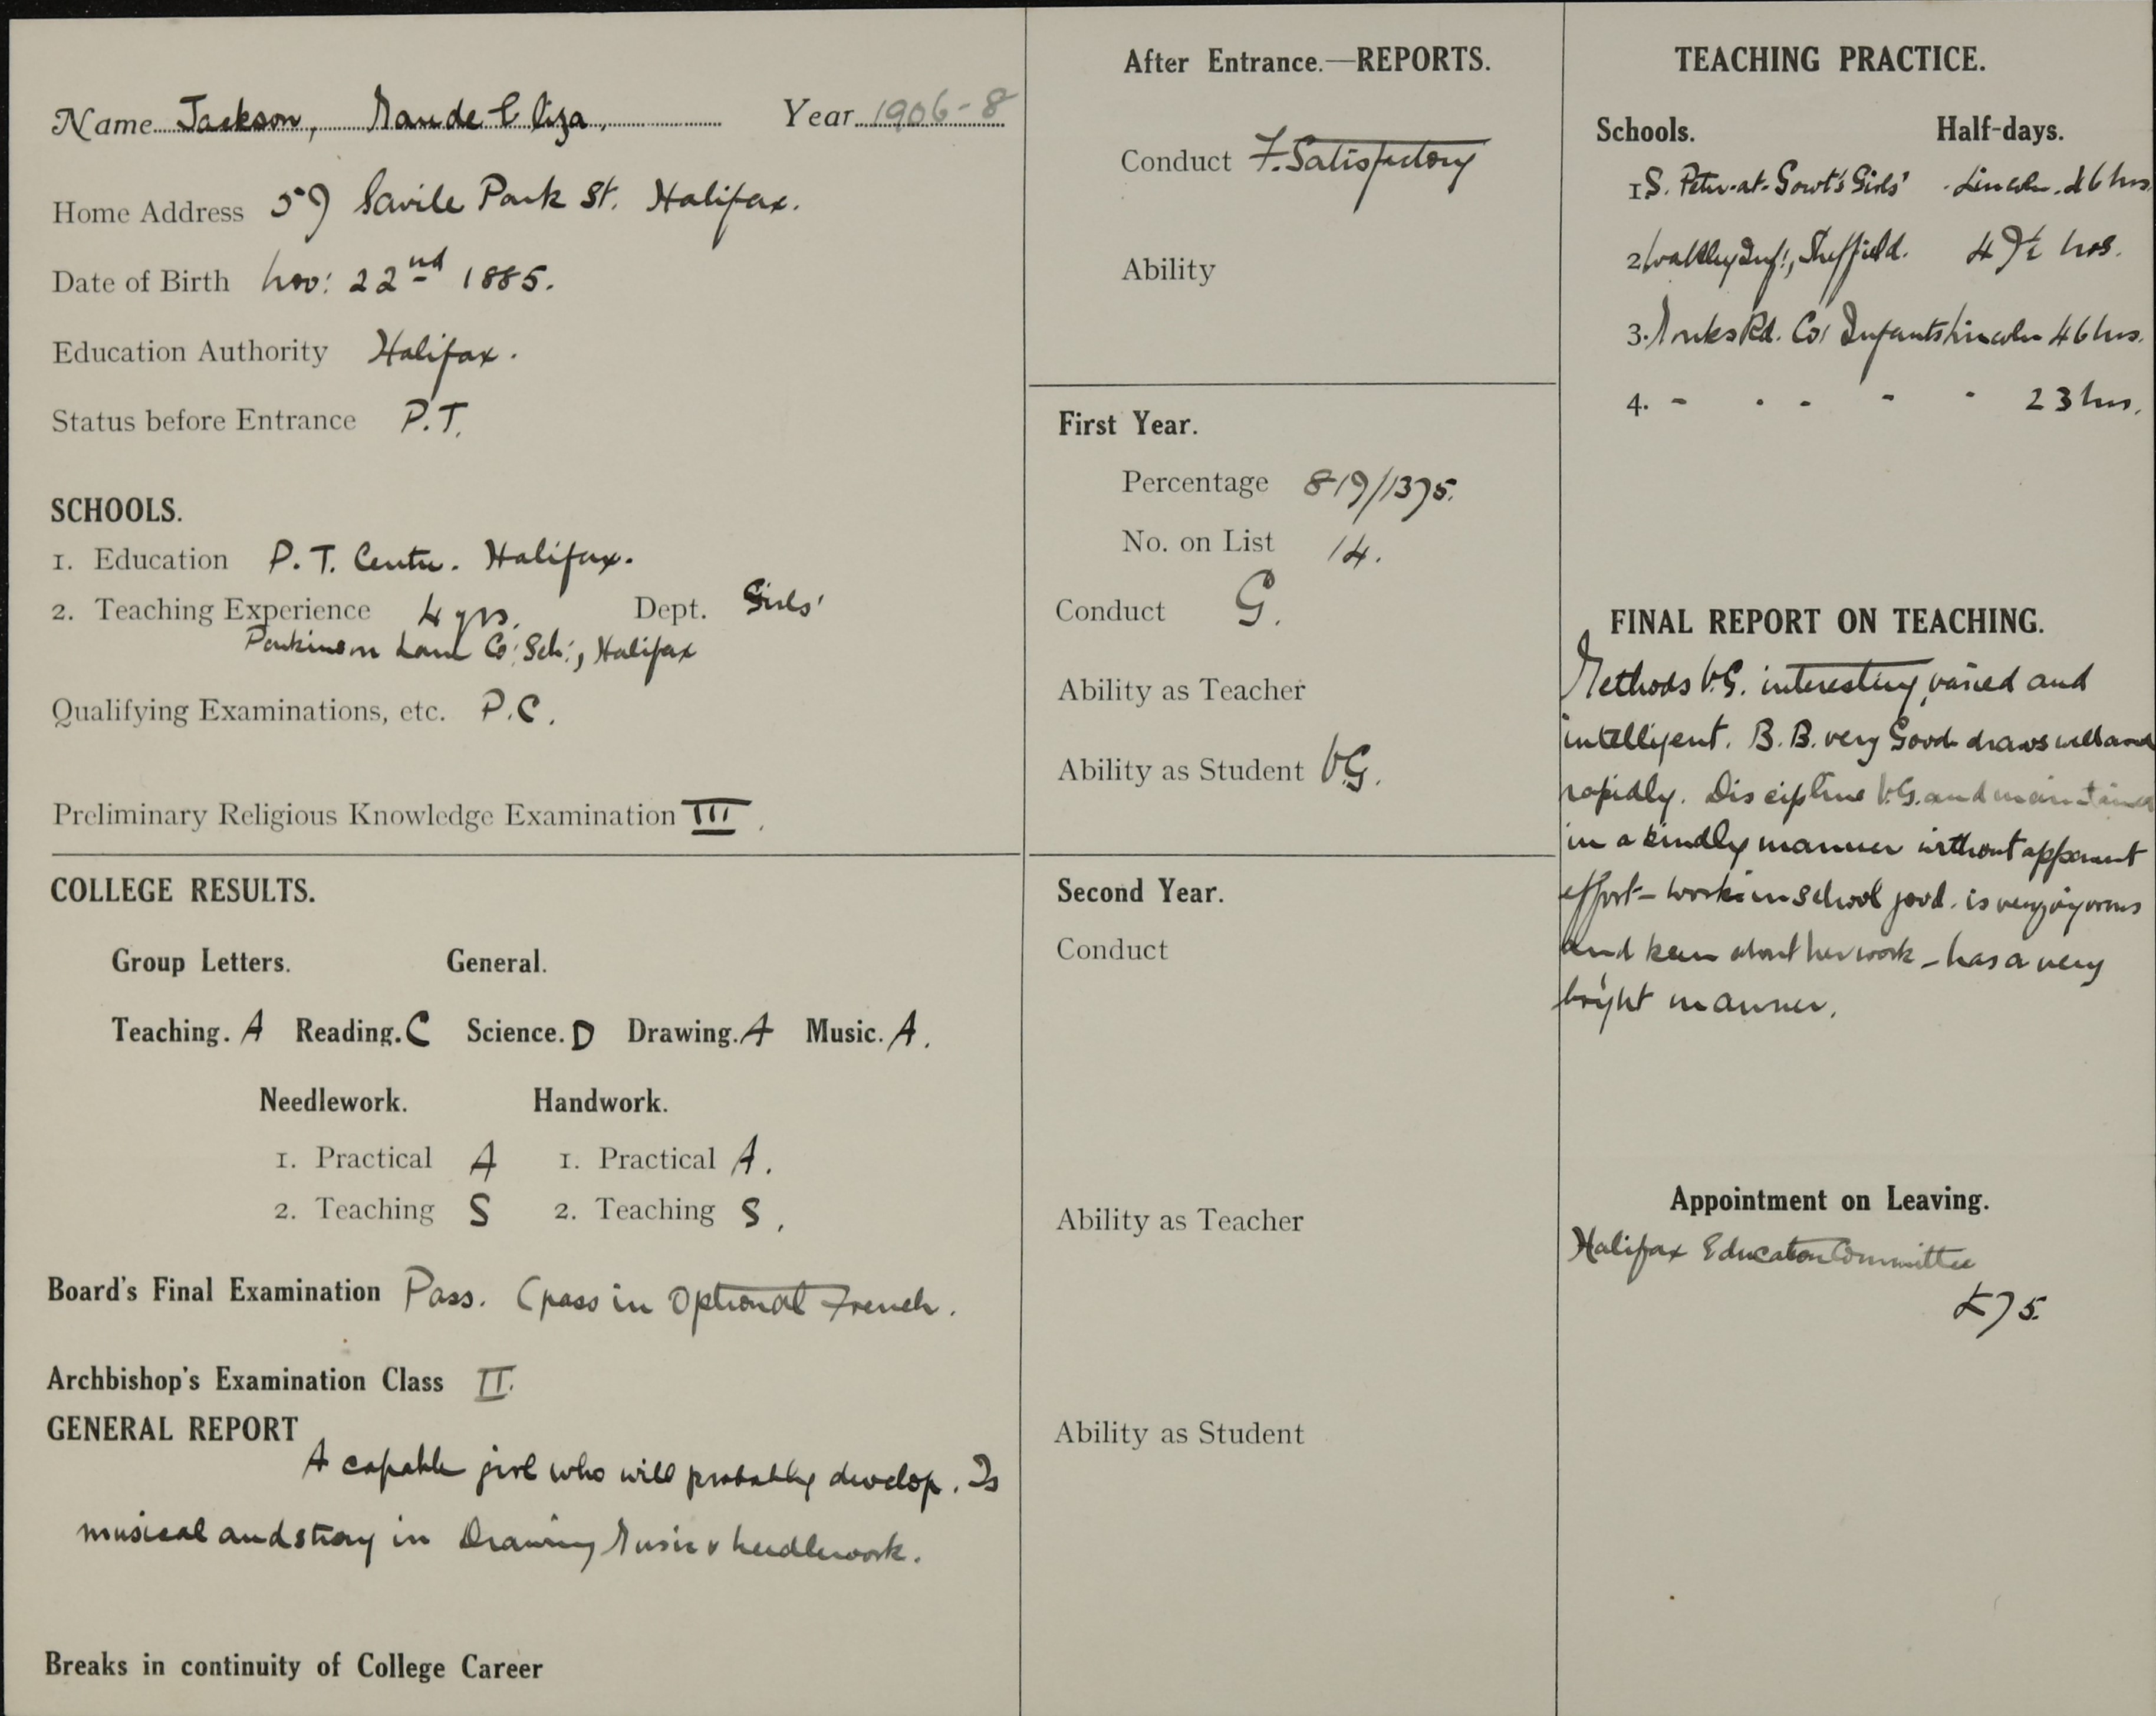 Name Jackson, Maude Eliza, Year 1906-8
Home Address 57 Savile Park St. Halifax.
Date of Birth Nov: 22nd 1885.
Education Authority Halifax.
Status before Entrance P.T.
SCHOOLS.
1. Education P.T. Centre. Halifax.
2. Teaching Experience 4 yrs. Dept. Girls'
Parkinson Lane Co: Sch:, Halifax
Qualifying Examinations, etc. P.C.
Preliminary Religious Knowledge Examination III.
COLLEGE RESULTS.
Group Letters. General.
Teaching. A Reading. C Science. D Drawing. A Music. A.
Needlework. Handwork.
1. Practical A 1. Practical A.
2. Teaching S 2. Teaching S.
Board's Final Examination Pass. (pass in Optional French.
Archbishop's Examination Class II.
GENERAL REPORT
A capable girl who will probably develop. Is
musical and strong in Drawing Music & Needlework.
Breaks in continuity of College Career
After Entrance.—REPORTS.
Conduct F. Satisfactory
Ability
First Year.
Percentage 819/1375.
No. on List 14.
Conduct G.
Ability as Teacher
Ability as Student V.G.
Second Year.
Conduct
Ability as Teacher
Ability as Student
TEACHING PRACTICE.
Schools. Half-days.
1 S. Peter-at-Gowt's Girls' Lincoln. 26 hrs.
2 Walkley Inf:, Sheffield. 47½ hrs.
3. Monks Rd. Co: Infants Lincoln 46 hrs.
4. - . - - - 23 hrs.
FINAL REPORT ON TEACHING.
Methods V.G. interesting, varied and
intelligent. B.B. very Good draws well and
rapidly. Discipline V.G. and maintained
in a kindly manner without apparent
effort - work in school good. is very vigorous
and keen about her work - has a very
bright manner.
Appointment on Leaving.
Halifax Education Committee
£75.